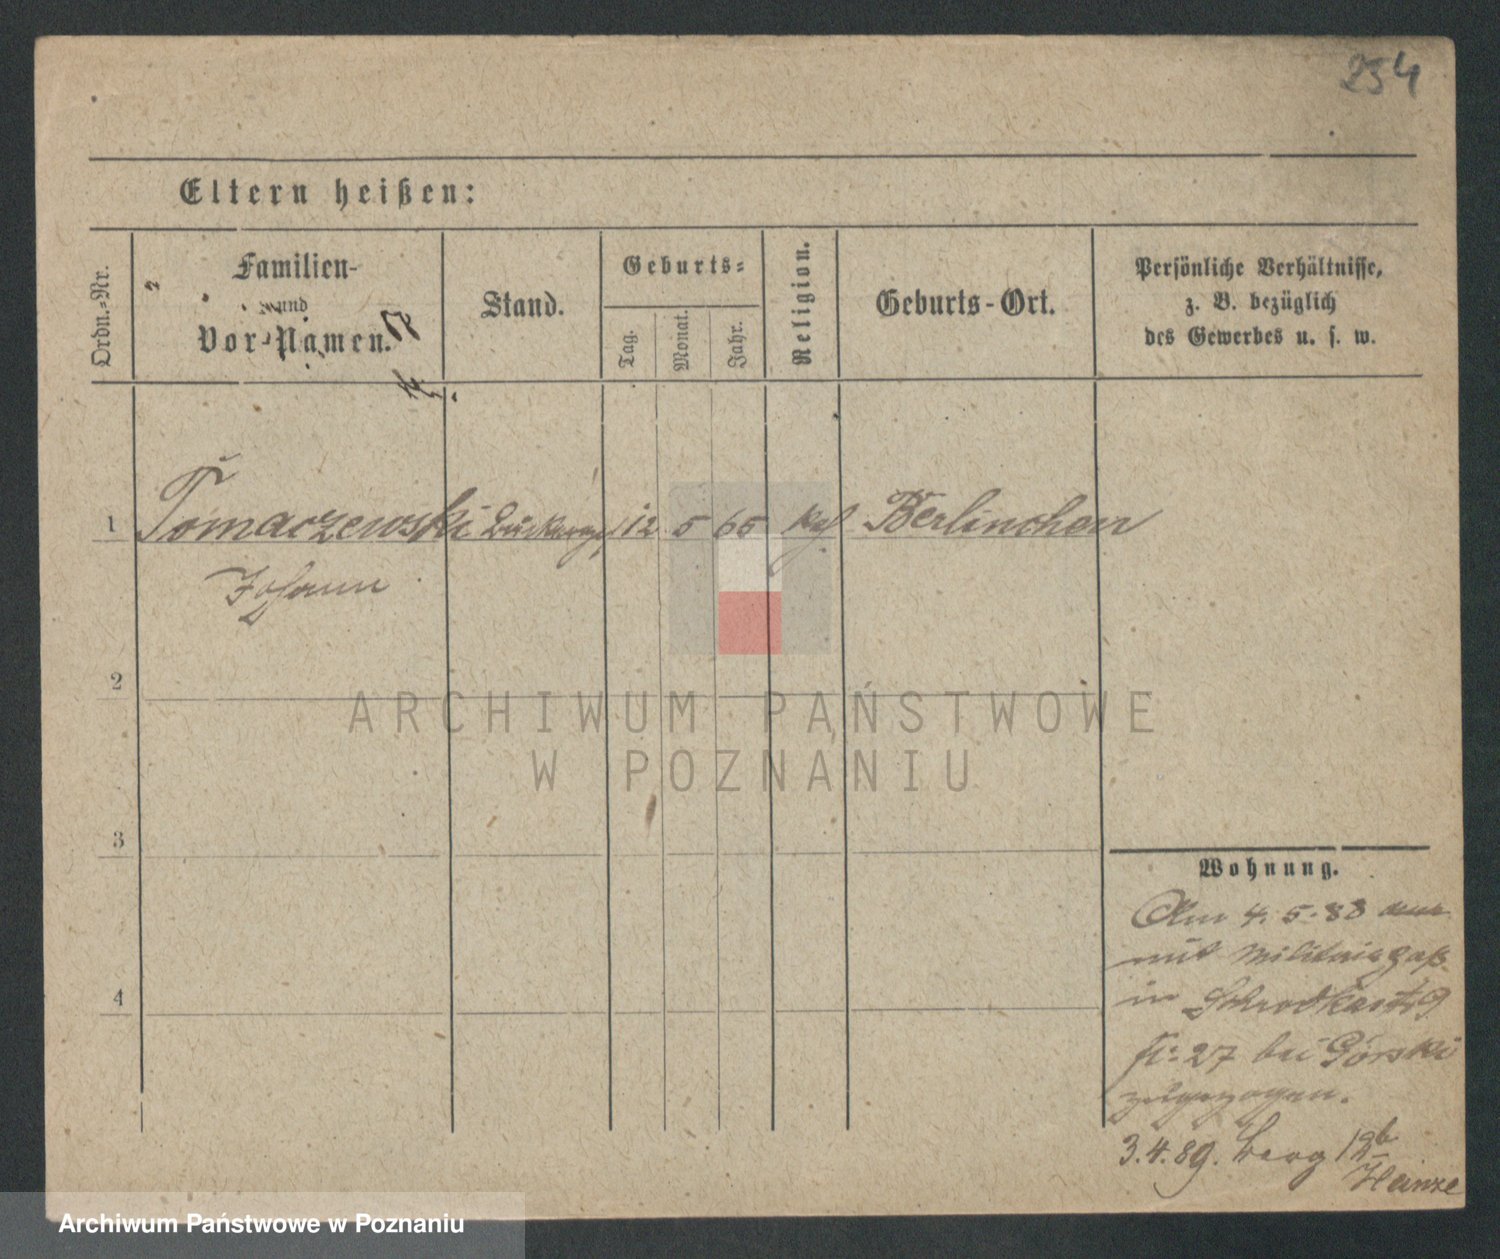 254
Eltern heißen:
Ordn.-Nr.
Familien-
und
Vor-Namen.
Stand.
Geburts-
Tag.
Monat.
Jahr.
Religion.
Geburts-Ort.
Persönliche Verhältnisse,
z. B. bezüglich
des Gewerbes u. s. w.
1 Tomaczewski 12 5 65 Berlinchen
Johann
2
3
4
Wohnung.
Am 4. 5. 88
mit Militairpaß
in
27 bei Górski
zugezogen.
3.4.89. Berg 12b
Heinze
ARCHIWUM PAŃSTWOWE
W POZNANIU
Archiwum Państwowe w Poznaniu